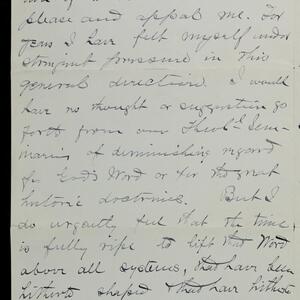 please and appal me. For
years I have felt myself under
stringent pressure in this
general direction. I would
have no thought or suggestion go
forth from our Theol. Sem-
inaries of diminishing regard
for God's Word or for the great
historic doctrines. But I
do urgently feel that the time
is fully ripe to lift that Word
above all systems, that have been
hitherto shaped & that have hitherto